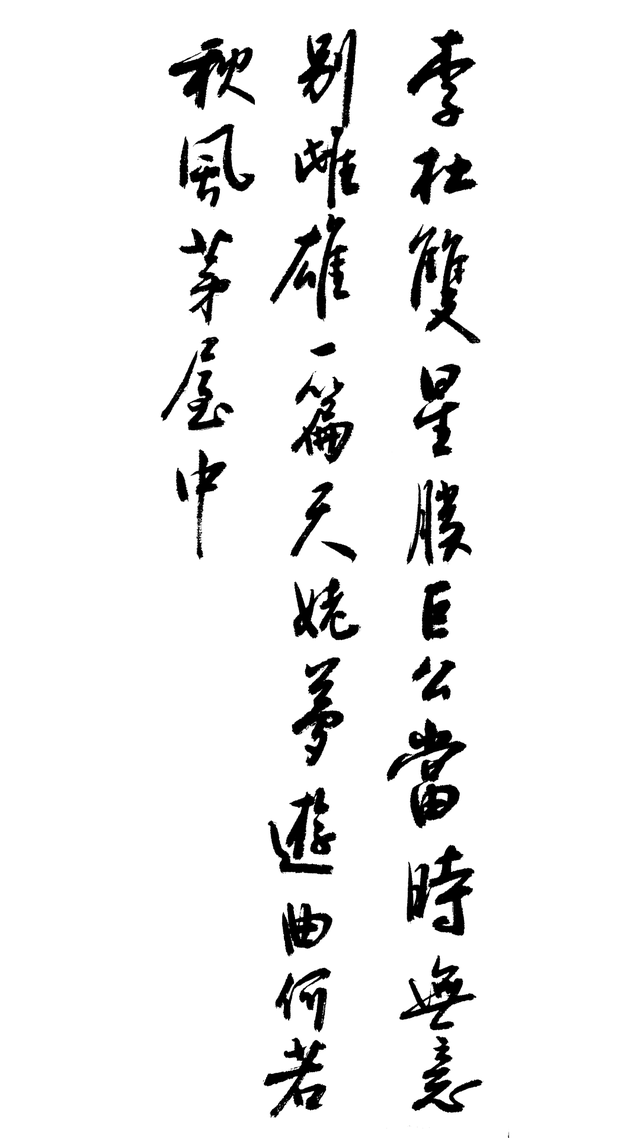 李杜雙星勝巨公當時無意
别雌雄一篇天姥夢遊曲何若
秋風茅屋中